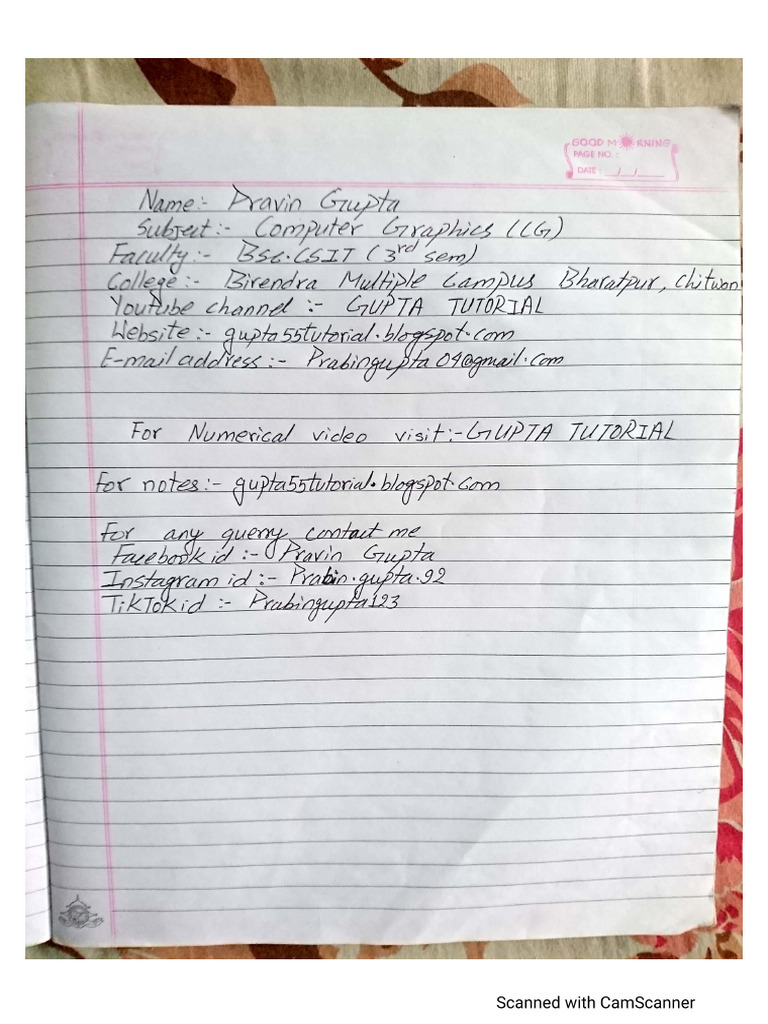 GOOD MORNING
PAGE NO. :
DATE : / /
Name:- Pravin Gupta
Subject:- Computer Graphics (CG)
Faculty:- BSc.CSIT (3rd sem)
College:- Birendra Multiple Campus Bharatpur, Chitwan
Youtube channel :- GUPTA TUTORIAL
Website:- gupta55tutorial.blogspot.com
E-mail address:- Prabingupta04@gmail.com
For Numerical video visit:-GUPTA TUTORIAL
For notes:- gupta55tutorial.blogspot.com
For any querry contact me
Facebook id :- Pravin Gupta
Instagram id :- Prabin.gupta.92
TikTok id :- Prabingupta123
Scanned with CamScanner